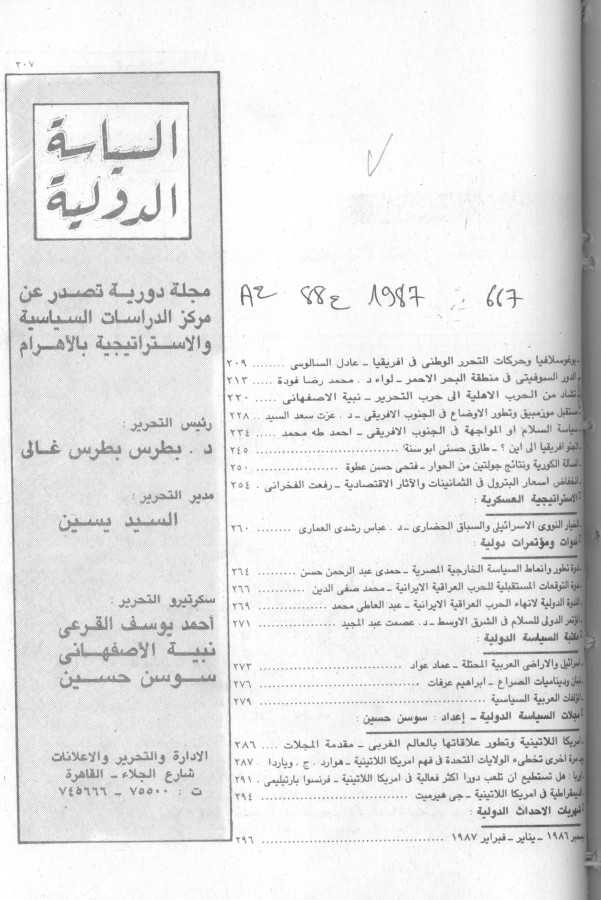 ٣٠٧
السياسة
الدولية
مجلة دورية تصدر عن
مركز الدراسات السياسية
والاستراتيجية بالأهرام
رئيس التحرير :
د . بطرس بطرس غالى
مدير التحرير :
السيد يسين
سكرتيرو التحرير :
أحمد يوسف القرعى
نبية الأصفهانى
سوسن حسين
الادارة والتحرير والاعلانات
شارع الجلاء ـ القاهرة
ت : ٧٥٥٠٠ ـ ٧٤٥٦٦٦
AZ 88ع 1987 667
يوغوسلافيا وحركات التحرر الوطنى فى افريقيا ـ عادل السالوسى ........ ٢٠٩
الدور السوفيتى فى منطقة البحر الاحمر ـ لواء د . محمد رضا فودة ..... ٢١٣
تشاد من الحرب الاهلية الى حرب التحرير ـ نبية الاصفهانى ..... ٢٢٠
مستقبل موزمبيق وتطور الاوضاع فى الجنوب الافريقى ـ د . عزت سعد السيد .. ٢٢٨
سياسة السلام او المواجهة فى الجنوب الافريقى ـ احمد طه محمد ..... ٢٣٤
افريقيا الى اين ؟ ـ طارق حسنى ابو سنة ..... ٢٤٥
الكورية ونتائج جولتين من الحوار ـ فتحى حسن عطوة ..... ٢٥٠
انخفاض اسعار البترول فى الثمانينات والآثار الاقتصادية ـ رفعت الفخرانى . ٢٥٤
الاستراتيجية العسكرية :
الخيار النووى الاسرائيلى والسباق الحضارى ـ د. عباس رشدى العمارى ........ ٢٦٠
ندوات ومؤتمرات دولية :
ندوة تطور وانماط السياسة الخارجية المصرية ـ حمدى عبد الرحمن حسن .......... ٢٦٤
ندوة التوقعات المستقبلية للحرب العراقية الايرانية ـ محمد صفى الدين ........... ٢٦٦
الندوة الدولية لانهاء الحرب العراقية الايرانية ـ عبد العاطى محمد ........... ٢٦٩
المؤتمر الدولى للسلام فى الشرق الاوسط ـ د. عصمت عبد المجيد ........... ٢٧١
مكتبة السياسة الدولية :
اسرائيل والاراضى العربية المحتلة ـ عماد عواد ........................ ٢٧٣
وديناميات الصراع ـ ابراهيم عرفات ........................ ٢٧٦
المؤلفات العربية السياسية ........................ ٢٧٩
مجلات السياسة الدولية ـ إعداد : سوسن حسين :
امريكا اللاتينية وتطور علاقاتها بالعالم الغربى ـ مقدمة المجلات ..... ٢٨٦
مرة اخرى تخطىء الولايات المتحدة فى فهم امريكا اللاتينية ـ هوارد . ج . وياردا .. ٢٨٧
: هل تستطيع ان تلعب دورا اكثر فعالية فى امريكا اللاتينية ـ فرنسوا بارتيليمى . ٢٩١
الديمقراطية فى امريكا اللاتينية ـ جى هيرميت ..................... ٢٩٤
شهريات الاحداث الدولية :
ديسمبر ١٩٨٦ ـ يناير ـ فبراير ١٩٨٧ ........................ ٢٩٦